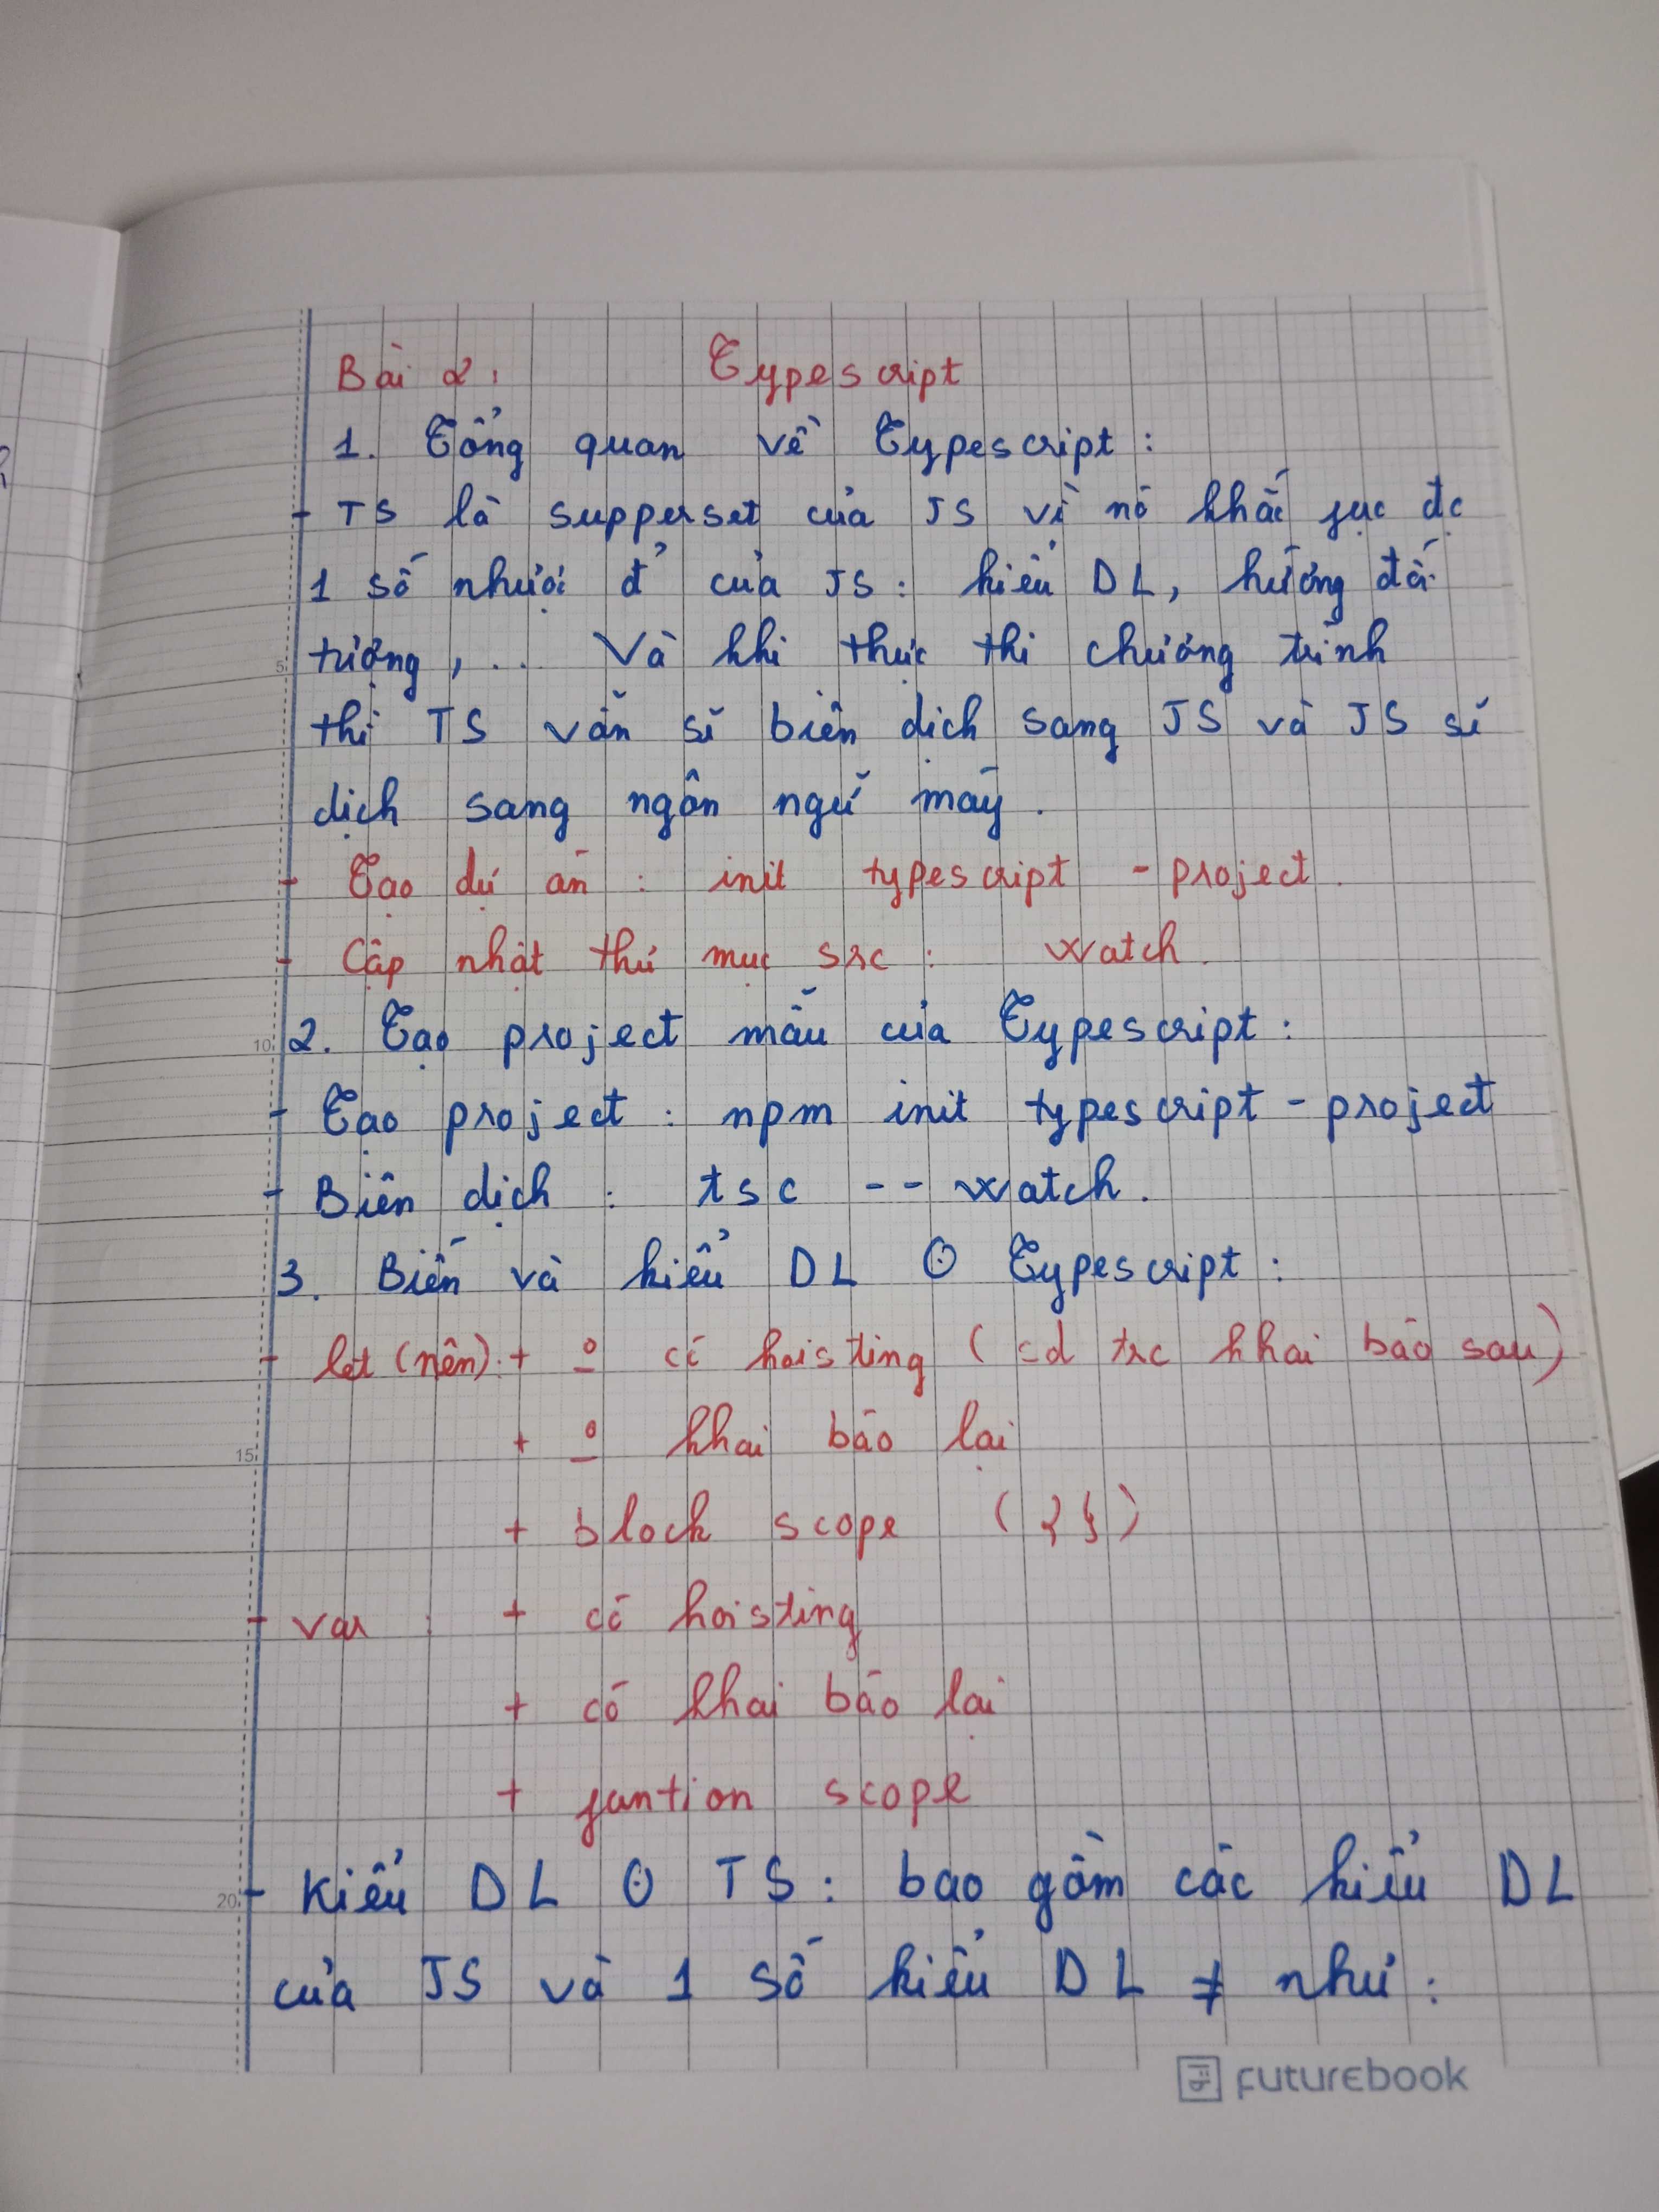 Bài 2: Typescript
1. Tổng quan về Typescript:
- TS là supperset của JS vì nó khắc fục đc
1 số nhược đ' của JS: kiểu DL, hướng đối
tượng, ... Và khi thực thi chương trình
thì TS vẫn sẽ biên dịch sang JS và JS sẽ
dịch sang ngôn ngữ máy.
- Tạo dự án : init typescript - project.
- Cập nhật thư mục src : watch.
2. Tạo project mẫu của Typescript:
- Tạo project : npm init typescript - project
- Biên dịch : tsc -- watch.
3. Biến và kiểu DL ⊙ Typescript:
- let (nên): + o có hoisting (sd trc khai báo sau)
+ o khai báo lại
+ block scope ({})
- var : + có hoisting
+ có khai báo lại
+ funtion scope
- Kiểu DL ⊙ TS: bao gồm các kiểu DL
của JS và 1 số kiểu DL ≠ như:
5
10
15
20
futurebook